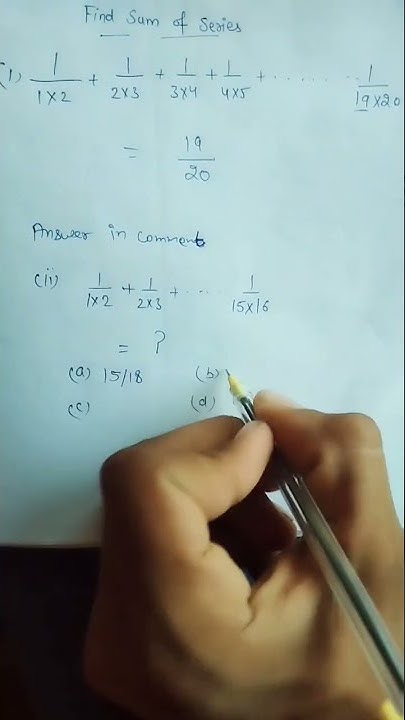 Find Sum of Series
(1) 1/1×2 + 1/2×3 + 1/3×4 + 1/4×5 + ........ 1/19×20
= 19/20
Answer in comment
(ii) 1/1×2 + 1/2×3 + ..... 1/15×16
= ?
(a) 15/18 (b)
(c) (d)